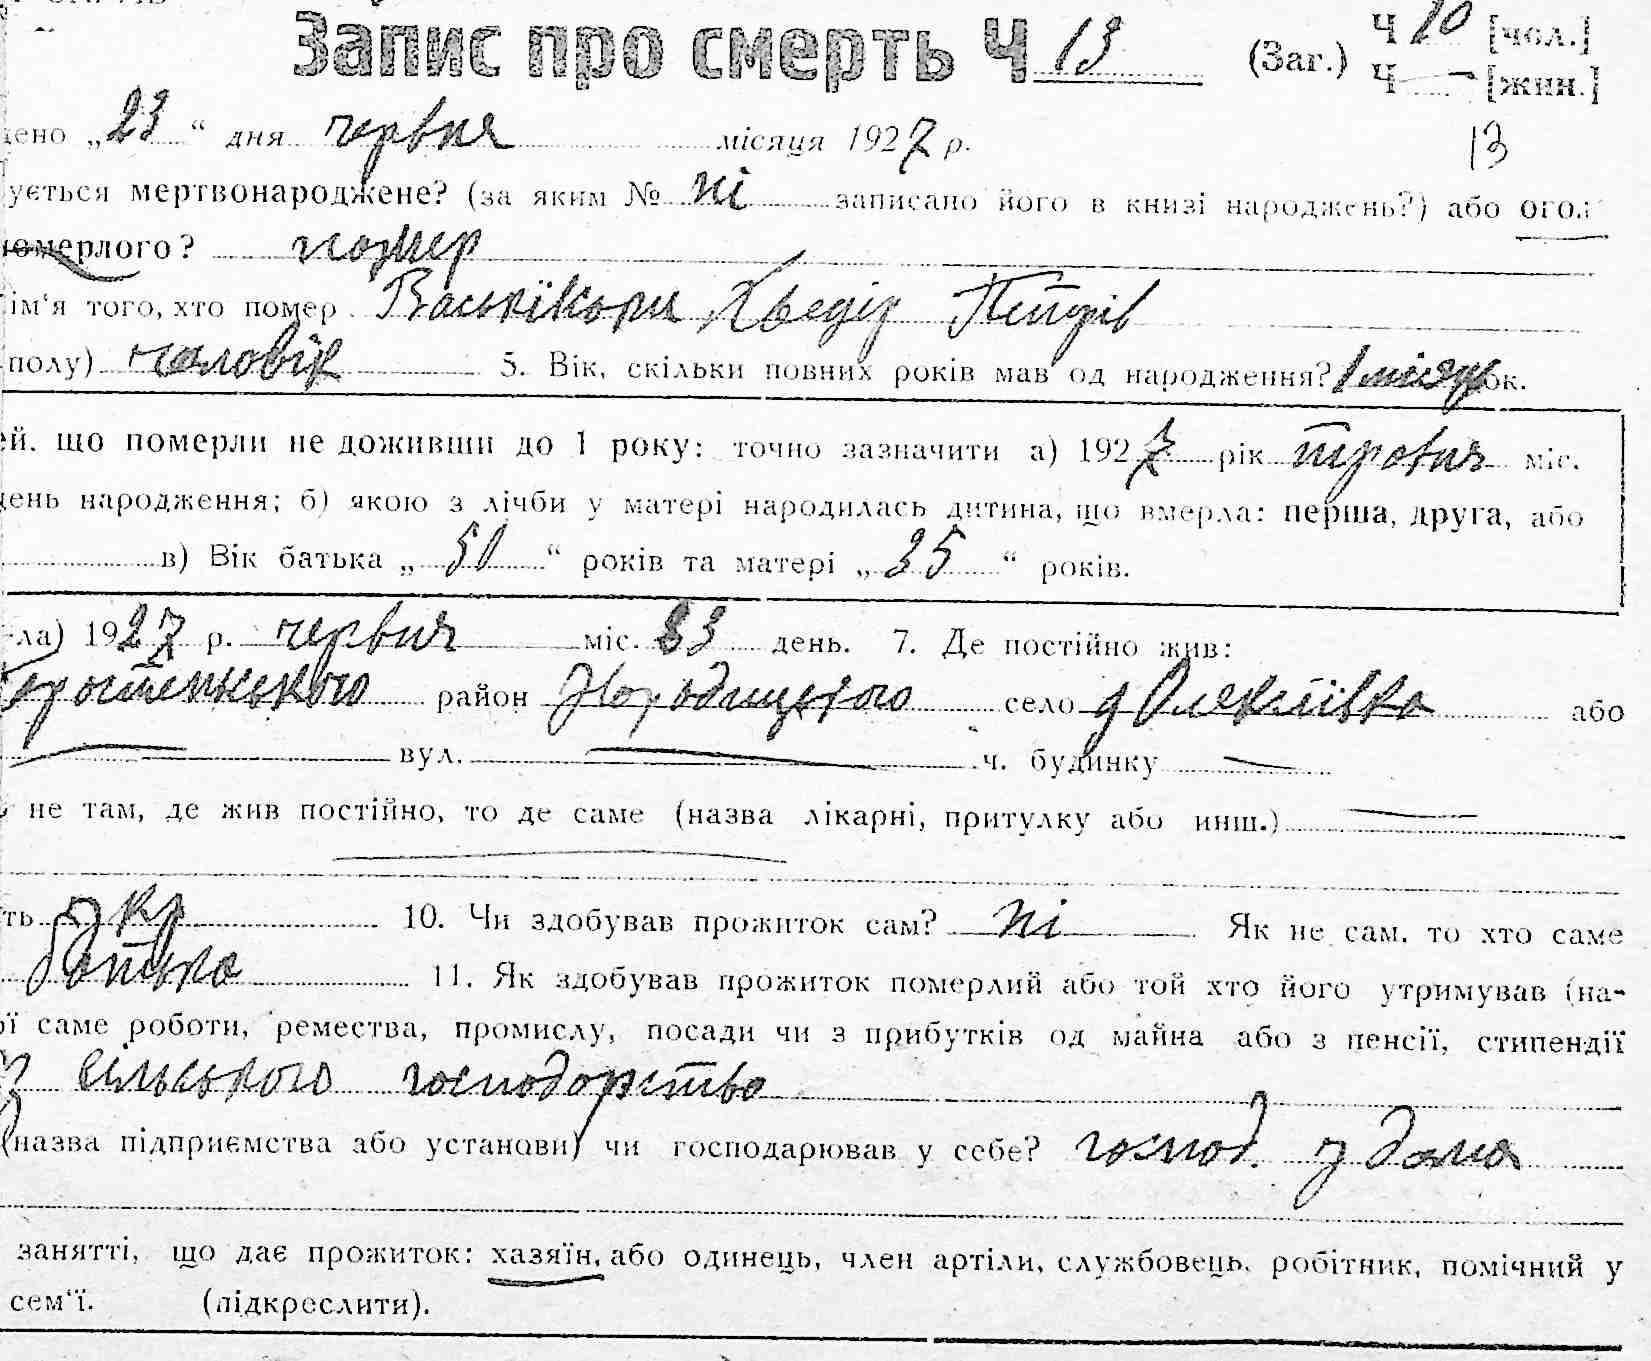 Запис про смерть Ч 13 (Заг.) Ч 10 [чол.]
Ч — [жин.]
13
дено „23“ дня червня місяця 1927 р.
ується мертвонароджене? (за яким № ні записано його в книзі народжень?) або огол
померлого? помер
ім‘я того, хто помер Хведір
полу) чоловік 5. Вік, скільки повних років мав од народження? 1 місяць ок.
ей, що померли не доживши до 1 року: точно зазначити а) 1927 рік травня міс.
день народження; б) якою з лічби у матері народилась дитина, що вмерла: перша, друга, або
в) Вік батька „ “ років та матері „ “ років.
ла) 1927 р. червня міс. 23 день. 7. Де постійно жив:
Коростенського район Народицького село д Олексіївка або
вул. — ч. будинку —
не там, де жив постійно, то де саме (назва лікарні, притулку або инш.) —
ть укр 10. Чи здобував прожиток сам? ні Як не сам, то хто саме
батько 11. Як здобував прожиток померлий або той хто його утримував (на-
ої саме роботи, ремества, промислу, посади чи з прибутків од майна або з пенсії, стипендії
з сільського господарства
(назва підприємства або установи) чи господарював у себе? господ. у дома
занятті, що дає прожиток: хазяїн, або одинець, член артіли, службовець, робітник, помічний у
сем‘ї. (підкреслити).